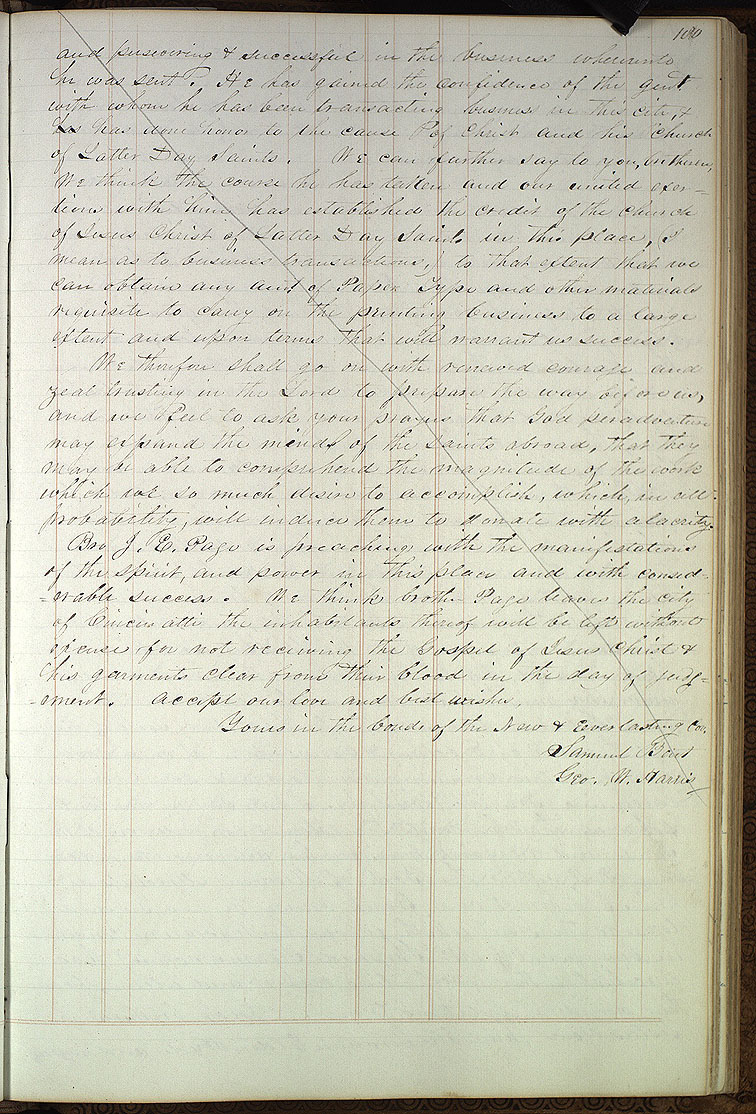 100
and persevering & successful in the business whereunto
he was sent. He has gained the confidence of the gent
with whom he has been transacting business in this city, &
has done honor to the cause of Christ and his church
of Latter Day Saints. We can further say to you, brethren,
We think the course he has taken and our united exer-
tions with him has established the credit of the church
of Jesus Christ of Latter Day Saints in this place, I
mean as to business transactions, to that extent that we
can obtain any amt of Paper Type and other materials
requisite to carry on the printing business to a large
extent and upon terms that will warrant us success.
We therefore shall go on with renewed courage and
zeal trusting in the Lord to prepare the way before us,
and we feel to ask your prayers that God peradventure
may expand the minds of the saints abroad, that they
may be able to comprehend the magnitude of the work
which we so much desire to accomplish, which, in all
probability, will induce them to donate with alacrity.
Bro J. E. Page is preaching with the manifestations
of the spirit, and power in this place and with consid-
-erable success. We think brother Page leaves the city
of Cincinatti the inhabitants thereof will be left without
excuse for not receiving the Gospel of Jesus Christ &
his garments clear from their blood in the day of judg-
-ement. Accept our love and best wishes.
Yours in the bonds of the New & Everlasting Cov.
Samuel Bent
Geo. W. Harris